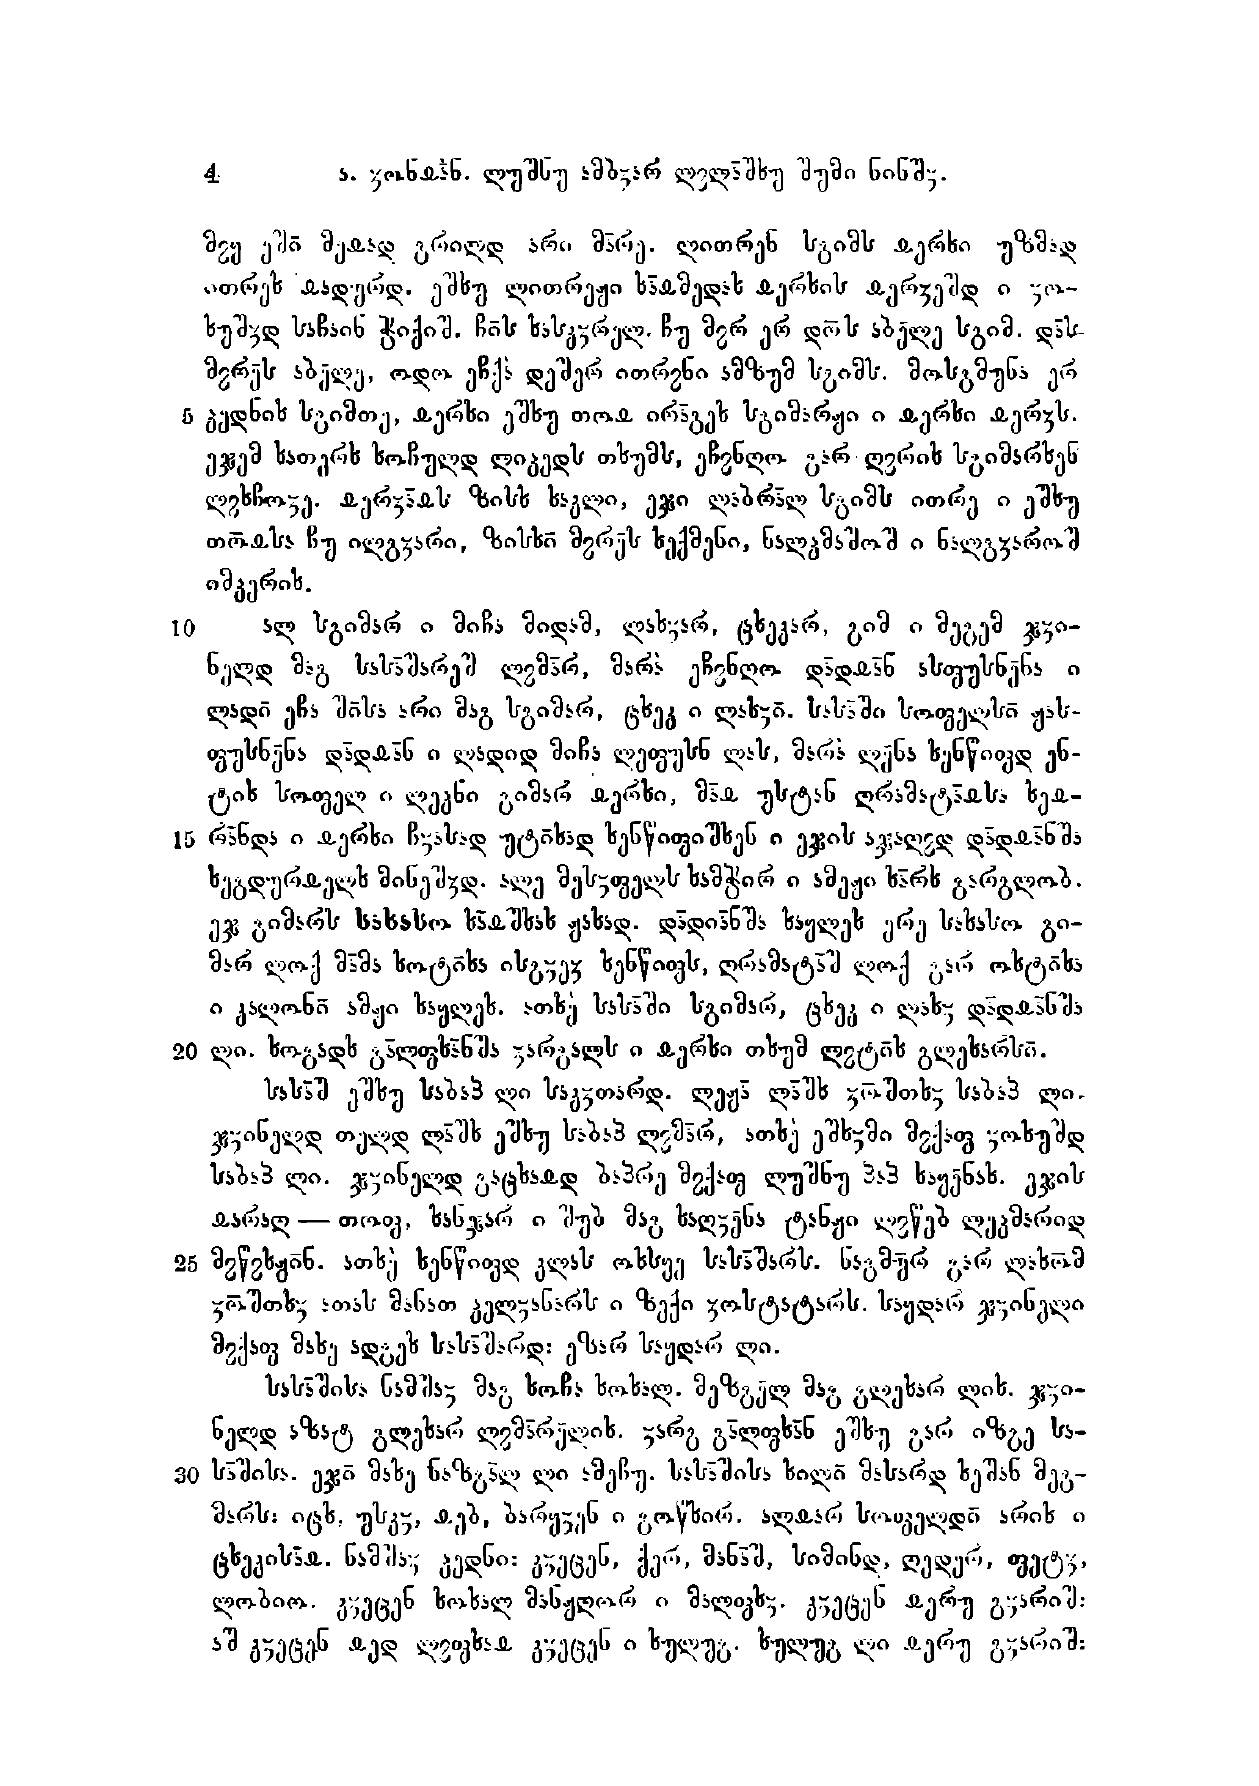 4 ა. ჳონჲა̈ნ. ლუშნუ ამბჳარ ლჷლა̄შხუ შუმი ნინშჳ.
მჷყ ეში̄ მეჲად გრილდ არი მა̄რე. ლითრენ სგიმს ჲერხი უზმად
ითრეხ ჲადერდ. ეშხუ ლითრეჟი ხა̄ჲმედას ჲერხის ჲერჳეშდ ი ჳო-
ხუშჳდ საჩაინ ჭიქიშ. ჩი̄ს ხასკჳრელ. ჩუ მჷრ ერ დო̄ს აბე̄ლე სგიმ. და̄ს-
მჷრე̄ს აბე̄ლე, ოდო ეჩქა̀ დეშერ ითრჷნი ამზუმ სგიმს. მოსგმუნა ერ
5 პედნიხ სგიმთე, ჲერხი ეშხუ თოჲ ირა̄გეხ სგიმარჟი ი ჲერხი ჲერჳს.
ეჯემ ხათერხ ხოჩულდ ლიპედს თხუმს, ეჩჷნღო გარ ღჷრიხ სგიმარხენ
ლჷხჩოჳე. ჲერჳა̄ჲს ზისხ ხაკლი, ეჯი ლაბრა̄ლ სგიმს ითრე ი ეშხუ
თო̄ჲსა ჩუ იღგჳარი, ზისხი̄ მჷრე̄ს ხექმენი, ნალკმაშოშ ი ნალგჳაროშ
იმკერის.
10 ალ სგიმარ ი მიჩა მიდამ, ლახჳარ, ცხეკარ, გიმ ი მეგემ ჯჳი-
ნელდ მაგ სასა̄შარეშ ლჷმა̄რ, მარა̀ ეჩჷნღო და̄დჲა̄ნ ასფუსნე̄ნა ი
ლადი̄ ეჩა ში̄სა არი მაგ სგიმარ, ცხეკ ი ლახჳი̄. სასა̄ში სოფელსი̄ ჟას-
ფუსნე̄ნა და̄დჲა̄ნ ი ლადიდ მიჩა ლეფუსნ ლას, მარა̀ ღე̄ნა ხენწიფდ ენ-
ტიხ სოფელ ი ლეკნი გიმარ ჲერხი, მა̄ჲ უსტან ღრამატა̄ჲსა ხეჲ-
15 რა̄ნდა ი ჲერხი ჩჳასად უტი̄ხად ხენწიფიშხენ ი ეჯის აჯაღჷდ და̄დჲა̄ნშა
ხეგდურჲელხ მინეშჳდ. ალე მესჳფელს ხამჭირ ი ამეჟი ხა̄რხ გარგლობ.
ეჯ გიმარს სახასო ხა̄ჲშხახ ჟახად. და̄დია̄ნშა ხაყლეხ ერე სახასო გი-
მარ ლოქ მა̄მა ხოტი̄ხა ისგჳეჯ ხენწიფს, ღრამატა̄შ ლოქ გარ ოხტი̄ხა
ი კაღონი̄ ამჟი ხაყლეხ. ათხე̀ სასა̄ში სგიმარ, ცხეკ ი ლახჳ და̄დჲა̄ნშა
20 ლი. ხოგადხ გა̄ლფხა̄ნშა ჳარგალს ი ჲერხი თხუმ ლჷტი̄ხ გლეხარსი̄.
სასა̄შ ეშხუ საბაპ ლი საკჳთარდ. ლეჟა̄ ლა̄შხ ჳო̄შთხჳ საბაპ ლი.
ჯჳინელდ თელდ ლა̄შხ ეშხუ საბაპ ლჷმა̄რ, ათხე̀ ეშხჳმი მჷქაფ ჳოხუშდ
საბაპ ლი. ჯჳინელდ გაცხაჲდ ბაპრე მჷქაფ ლუშნუ პაპ ხაყე̄ნახ. ეჯის
ჲარაღ — თოფ, ხანჯარ ი შუბ მაგ ხაღჳე̄ნა ტანჟი ღჷწებ ლეკმარიდ
25 მჷწჷხჟი̄ნ. ათხე̀ ხენწიფდ კლას ოხსყე სასა̄შარს. ნაგმუ̄რ გარ ლახო̄მ
ჳო̄შთხჳ ათას მანათ კელჳანარს ი ზექი ჳოსტატარს. საყდარ ჯჳინელი
მჷქაფ მახე ადგეხ სასა̄შარდ: ეზარ საყდარ ლი.
სასა̄შისა ნამშაჳ მაგ ხოჩა ხოხალ. მეზგე̄ლ მაგ გლეხარ ლიხ. ჯჳი-
ნელდ აზატ გლეხარ ლჷმა̄რე̄ლიხ. ჳარგ გა̄ლფხა̄ნ ეშხუ გარ იზგე სა-
30 სა̄შისა. ეჯი̄ მახე ნაზგა̄ლ ლი ამეჩუ. სასა̄შისა ხილი̄ მასარდ ხეშან მეგ-
მარს: იცხ, უსკჳ, ჰებ, ბარყჳენ ი გოწხირ. ალჲარ სოფელდი̄ არიხ ი
ცხეკისა̄ჲ. ნამშაჳ პედნი: კჳეცენ, ქერ, მანა̄შ, სიმინდ, ღედერ, ფეტჳ,
ლობიო. კჳეცენ ხოხალ მანჟღორ ი მაღიკხჳ. კჳეცენ ჲერუ გჳარიშ:
აშ კჳეცენ ჲედ ლჷფხაჲ კჳეცენ ი ხულუგ. ხულუგ ლი ჲერუ გჳარიშ: